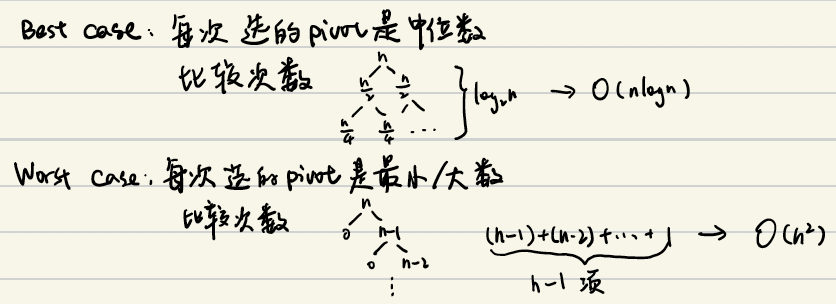 Best case: 每次选的pivot是中位数
比较次数
n
n/2 n/2
n/4 n/4 ...
log₂n → O(nlogn)
Worst case: 每次选的pivot是最小/大数
比较次数
n
0 n-1
0 n-2
⋮
(n-1)+(n-2)+...+1 → O(n²)
n-1 项